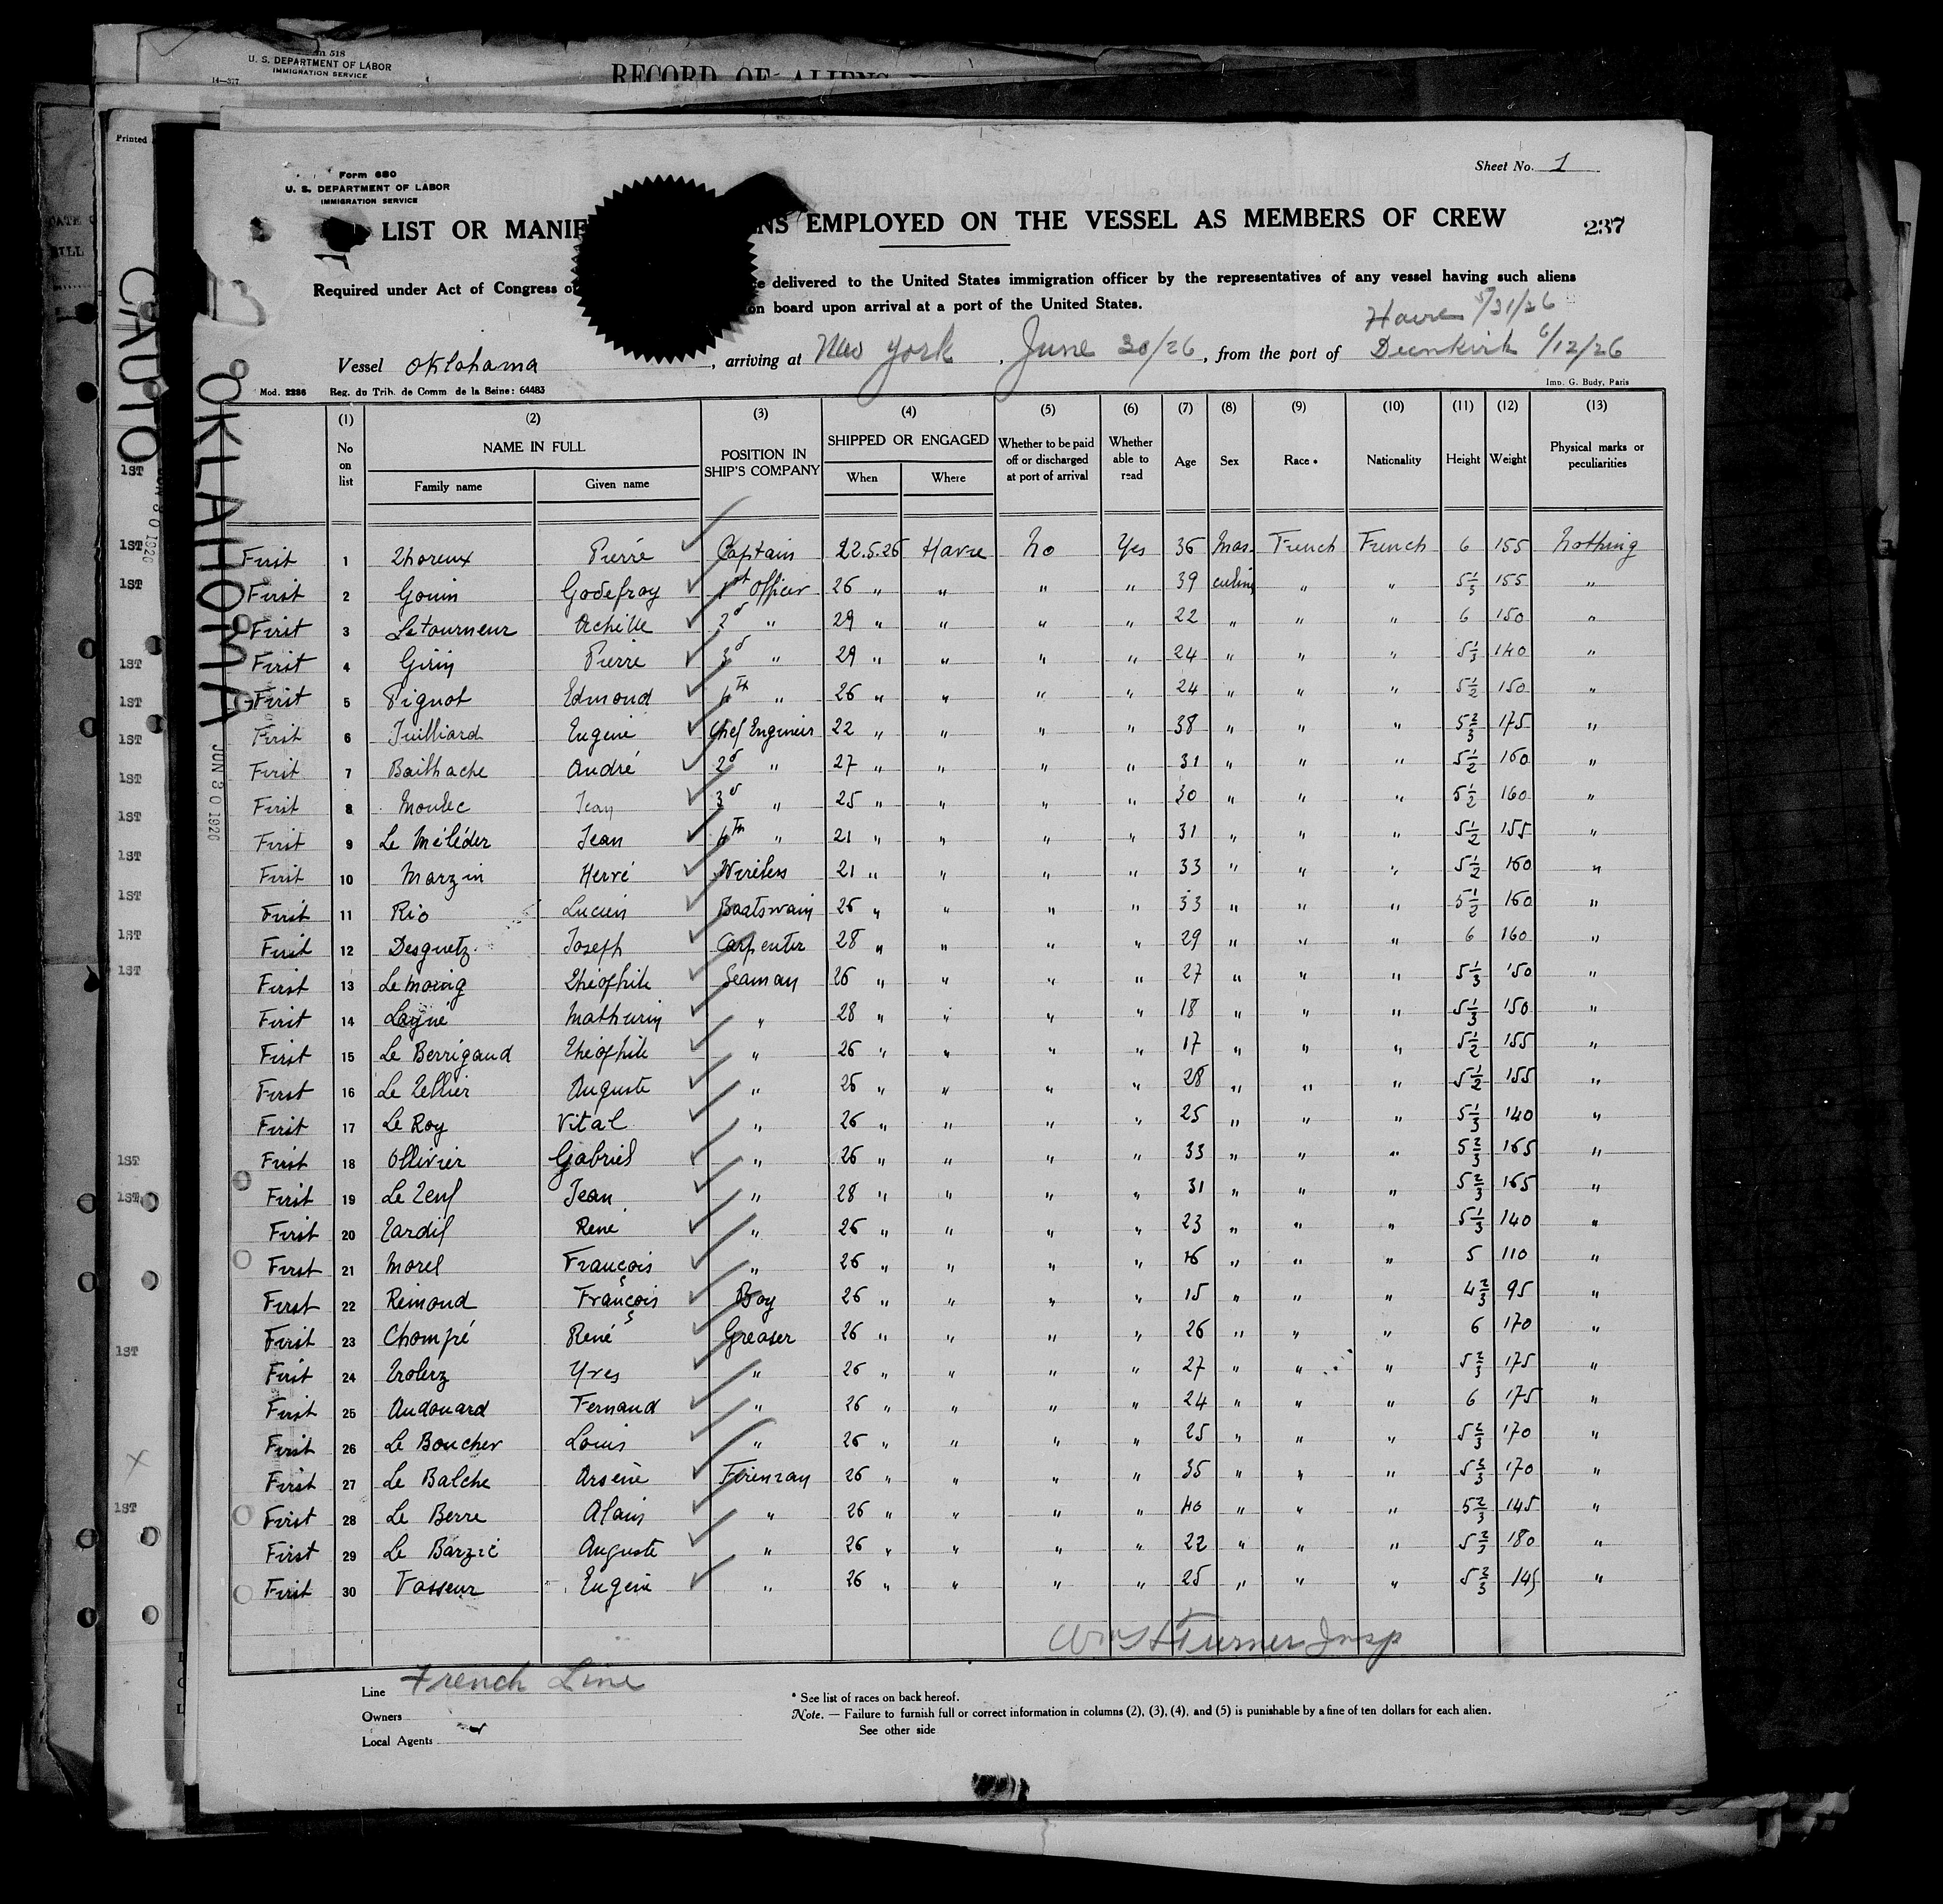 m 518
U. S. DEPARTMENT OF LABOR
IMMIGRATION SERVICE
14—377
RECORD OF ALIENS
Printed
CAUTO
OKLAHOMA
JUN 30 1926
Sheet No. 1
Form 680
U. S. DEPARTMENT OF LABOR
IMMIGRATION SERVICE
LIST OR MANIF NS EMPLOYED ON THE VESSEL AS MEMBERS OF CREW
237
Required under Act of Congress of e delivered to the United States immigration officer by the representatives of any vessel having such aliens
on board upon arrival at a port of the United States.
Havre 5/31/26
Vessel Oklahama, arriving at New York, June 30/26, from the port of Dunkirk 6/12/26
Mod. 2286 Reg. du Trib. de Comm de la Seine: 64483
Imp. G. Budy, Paris
(1) (2) (3) (4) (5) (6) (7) (8) (9) (10) (11) (12) (13)
No on list NAME IN FULL Family name Given name POSITION IN SHIP'S COMPANY SHIPPED OR ENGAGED When Where Whether to be paid off or discharged at port of arrival Whether able to read Age Sex Race * Nationality Height Weight Physical marks or peculiarities
First 1 Thoreux Pierre Captain 22.5.26 Havre No Yes 36 Mas- French French 6 155 Nothing
First 2 Gouin Godefroy 1st Officer 26 " " " " 39 culine " " 5 1/3 155 "
First 3 Letourneur Achille 2d " 29 " " " " 22 " " " 6 150 "
First 4 Girin Pierre 3d " 29 " " " " 24 " " " 5 1/3 140 "
First 5 Pignot Edmond 4th " 26 " " " " 24 " " " 5 1/2 150 "
First 6 Juilliard Eugène Chef Engineir 22 " " " " 38 " " " 5 2/3 175 "
First 7 Bailhache André 2d " 27 " " " " 31 " " " 5 1/2 160 "
First 8 Moulec Jean 3d " 25 " " " " 30 " " " 5 1/2 160 "
First 9 Le Méléder Jean 4th " 21 " " " " 31 " " " 5 1/2 155 "
First 10 Marzin Hervé Wireless 21 " " " " 33 " " " 5 1/2 160 "
First 11 Rio Lucien Boatswain 26 " " " " 33 " " " 5 1/2 160 "
First 12 Desguetz Joseph Carpenter 28 " " " " 29 " " " 6 160 "
First 13 Le Théophile Seaman 26 " " " " 27 " " " 5 1/3 150 "
First 14 Mathurin " 28 " " " " 18 " " " 5 1/3 150 "
First 15 Le Berrigaud Théophile " 26 " " " " 17 " " " 5 1/2 155 "
First 16 Le Tellier Auguste " 26 " " " " 28 " " " 5 1/2 155 "
First 17 Le Roy Vital " 26 " " " " 25 " " " 5 1/3 140 "
First 18 Ollivier Gabriel " 26 " " " " 33 " " " 5 2/3 165 "
First 19 Le Jean " 28 " " " " 31 " " " 5 2/3 165 "
First 20 Tardif René " 26 " " " " 23 " " " 5 1/3 140 "
First 21 Morel François " 26 " " " " 16 " " " 5 110 "
First 22 Rémond François Boy 26 " " " " 15 " " " 4 2/3 95 "
First 23 Chompré René Greaser 26 " " " " 26 " " " 6 170 "
First 24 Yves " 26 " " " " 27 " " " 5 2/3 175 "
First 25 Audouard Fernand " 26 " " " " 24 " " " 6 175 "
First 26 Le Boucher Louis " 26 " " " " 25 " " " 5 2/3 170 "
First 27 Le Balche Arsène Fireman 26 " " " " 35 " " " 5 2/3 170 "
First 28 Le Berre Alain " 26 " " " " 40 " " " 5 2/3 145 "
First 29 Le Barzic Auguste " 26 " " " " 22 " " " 5 2/3 180 "
First 30 Vasseur Eugène " 26 " " " " 25 " " " 5 2/3 145 "
Turner Insp
Line French Line
Owners
Local Agents
* See list of races on back hereof.
Note. — Failure to furnish full or correct information in columns (2), (3), (4), and (5) is punishable by a fine of ten dollars for each alien.
See other side